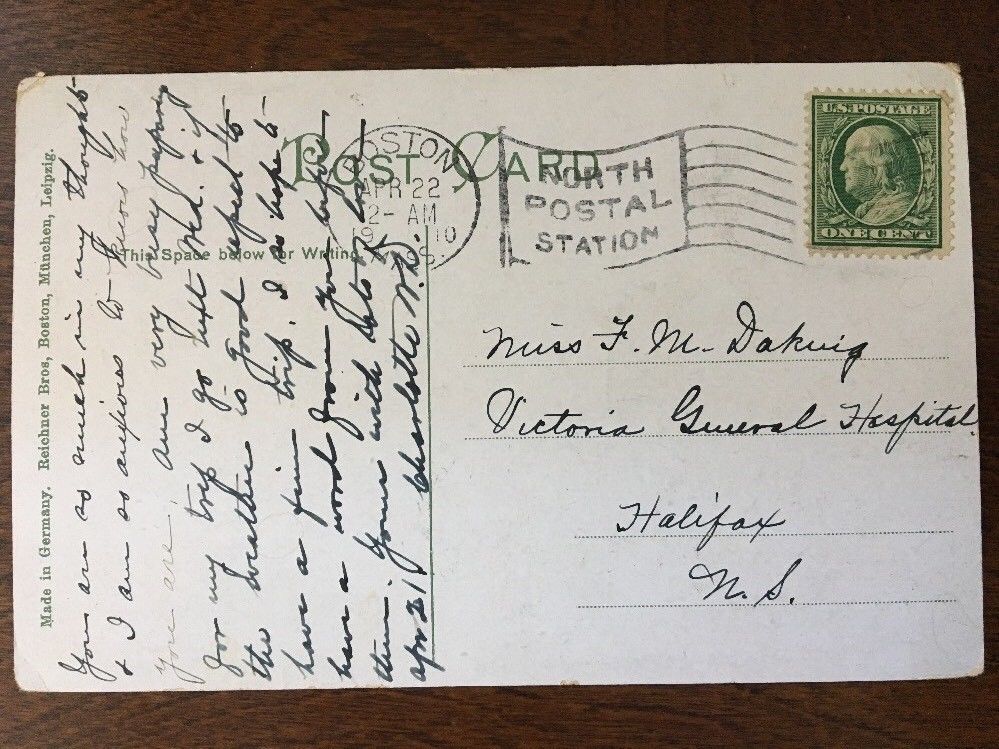 Made in Germany. Reichner Bros, Boston, München, Leipzig.
POST CARD
This Space below for Writing
BOSTON
APR 22
12-AM
1910
MASS.
NORTH
POSTAL
STATION
U.S. POSTAGE
ONE CENT
Miss F. M.
Victoria General Hospital
Halifax
N. S.
You are so much in my thought
& I am so anxious to know how
you are. am very busy preparing
for my trip I go Tues & if
the weather is good expect to
have a fine trip. I so hope to
have a word from you before
then. Yours with lots of love
Apr 21 Charlotte